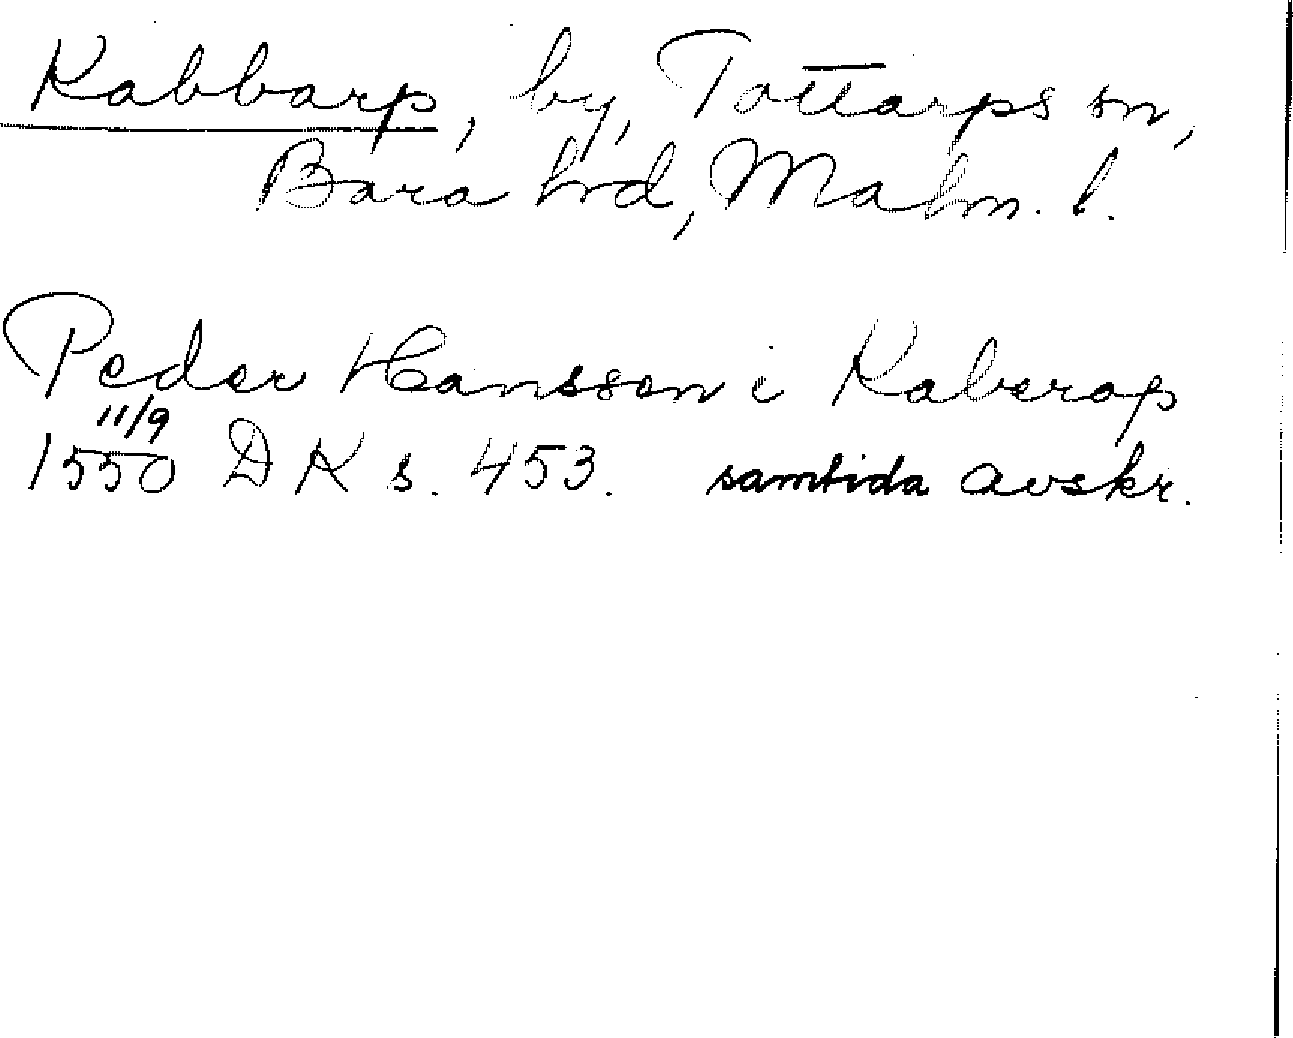 Kabbarp, by, Tottarps sn,
Bara hrd, Malm. l.
Peder Hansson i Kaberap
11/9
1550 DK s. 453. samtida avskr.